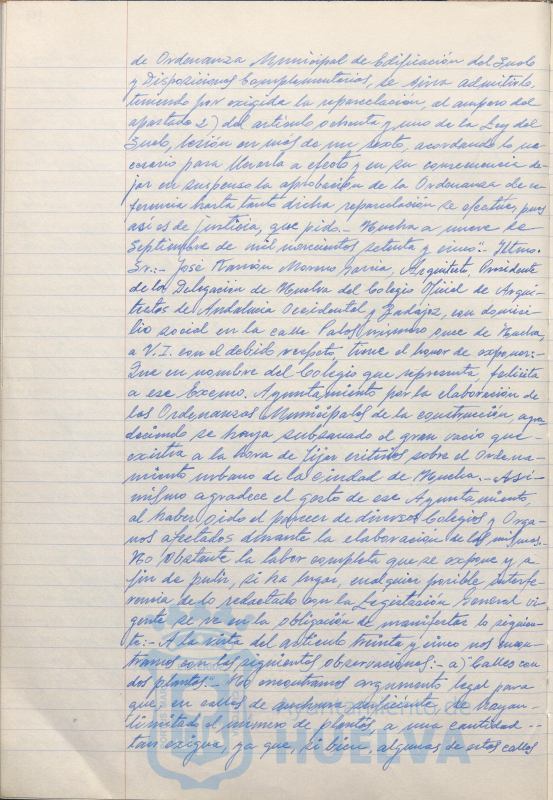 de Ordenanza Municipal de Edificación del Suelo
y Disposiciones Complementarias, se sirva admitirlo,
teniendo por exigida la reparcelación, al amparo del
apartado 2) del artículo ochenta y uno de la Ley del
Suelo, lesión en más de un sexto, acordando lo ne-
cesario para llevarla a efecto y en su consecuencia de-
jar en suspenso la aprobación de la Ordenanza de re-
ferencia hasta tanto dicha reparcelación se efectúe, pues
así es de justicia, que pido.- Huelva a nueve de
Septiembre de mil novecientos setenta y cinco".- Iltmo.
Sr.:- José Ramón Moreno García, Arquitecto, Presidente
de la Delegación de Huelva del Colegio Oficial de Arqui-
tectos de Andalucía Occidental y Badajoz, con domici-
lio social en la calle Palos número once de Huelva,
a V.I. con el debido respeto, tiene el honor de exponer:-
Que en nombre del Colegio que representa, felicita
a ese Excmo. Ayuntamiento por la elaboración de
las Ordenanzas Municipales de la construcción, agra-
deciendo se haya subsanado el gran vacío que-
existía a la hora de fijar criterios sobre el Ordena-
miento urbano de la Ciudad de Huelva.- Así-
mismo agradece el gesto de ese Ayuntamiento,
al haber oído el parecer de diversos Colegios y Orga-
nos afectados durante la elaboración de las mismas.-
No obstante la labor completa que se expone y a
fin de pulir, si ha lugar, cualquier posible interfe-
rencia de lo redactado con la Legislación General vi-
gente se ve en la obligación de manifestar lo siguien-
te:- A la vista del artículo treinta y cinco nos encon-
tramos con las siguientes observaciones:- a) Calles con
dos plantas:- No encontramos argumento legal para
que, en calles de anchura suficiente, se hayan-
limitado el número de plantas, a una cantidad--
tan exigua, ya que, si bien, algunas de estas calles
HUELVA